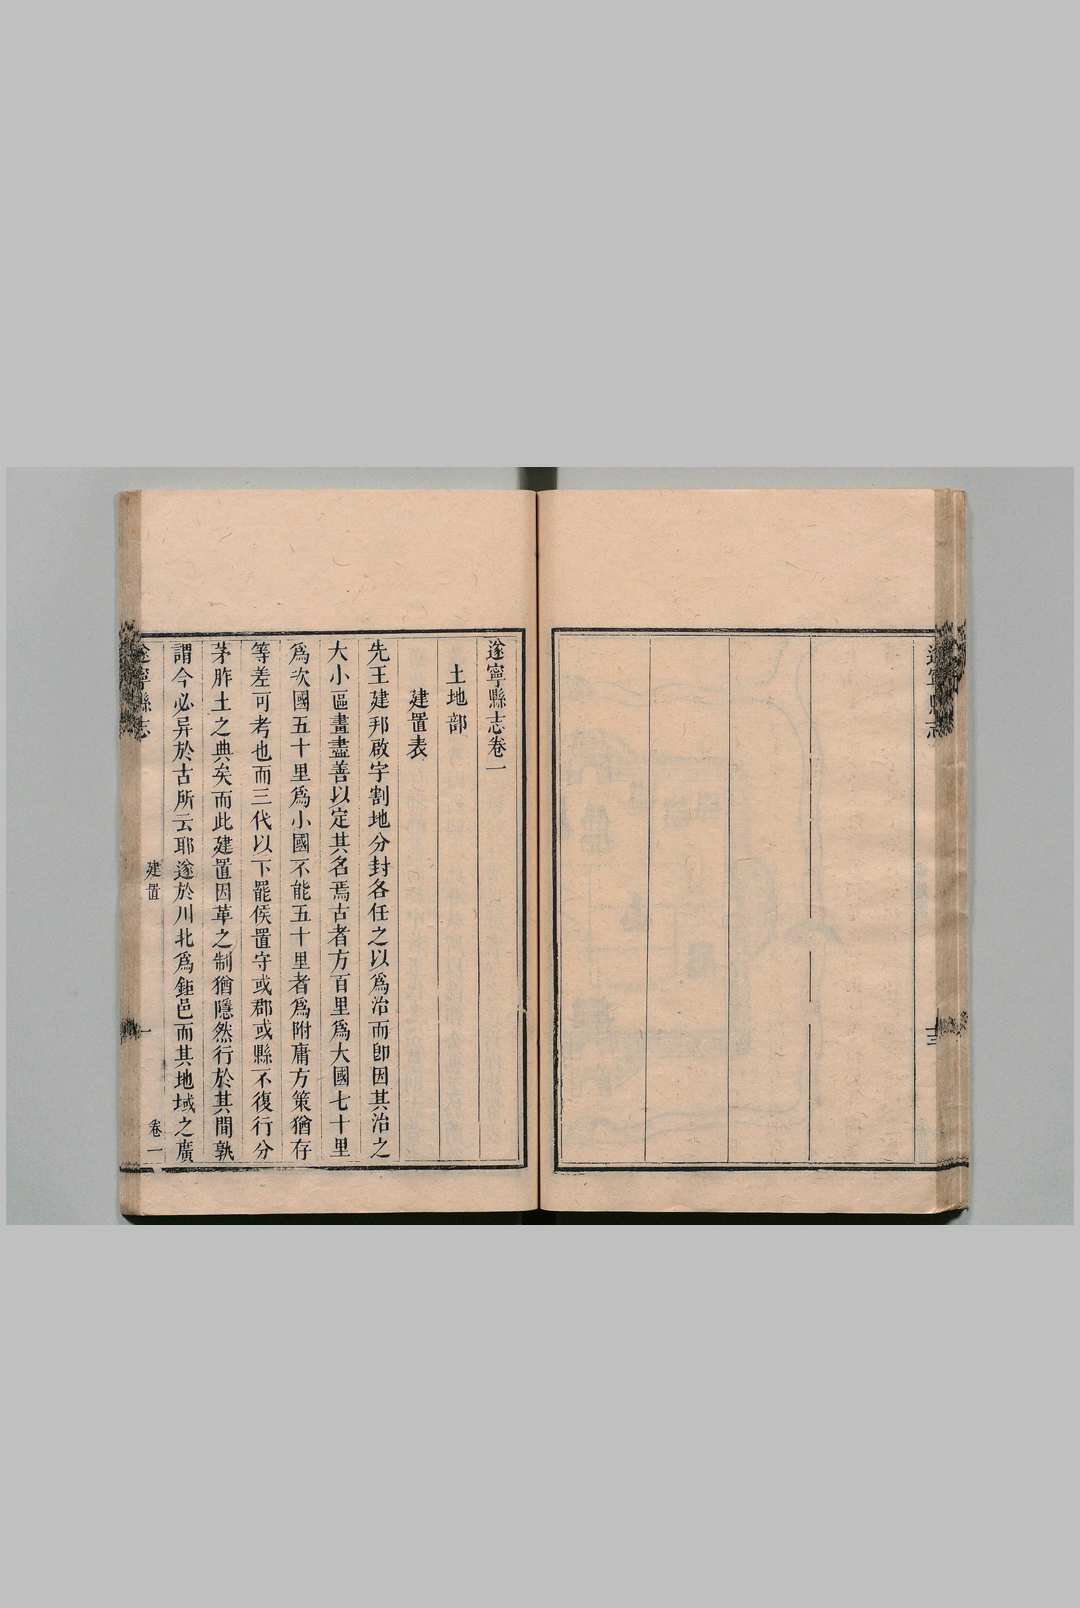 遂寧縣志
十三
遂寧縣志卷一
土地部
建置表
先王建邦啟宇割地分封各任之以爲治而卽因其治之
大小區畫盡善以定其名焉古者方百里爲大國七十里
爲次國五十里爲小國不能五十里者爲附庸方策猶存
等差可考也而三代以下罷侯置守或郡或縣不復行分
茅胙土之典矣而此建置因革之制猶隱然行於其間孰
謂今必异於古所云耶遂於川北爲鉅邑而其地域之廣
遂寧縣志
建置
一
卷一